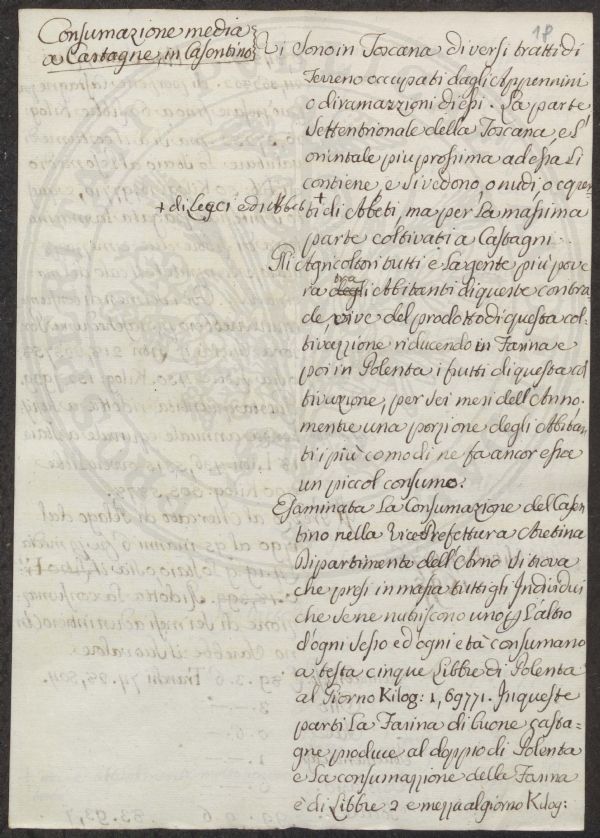 18
Consumazione media
a Castagne, in Casentino
Vi Sono in Toscana diversi tratti di
Terreno occupati dagli Appennini
o diramazzioni di essi. La parte
Settentrionale della Toscana, e l'
orientale piu prossima ad essa li
contiene, e si vedono, o nudi, o coper
+ di Lecci ed
ti di Abeti, ma per la massima
parte coltivati a Castagni.
Gli Agricoltori tutti e la gente più pove
ra tra gli Abitanti di queste contra
de, vive del prodotto di questa col:
tivazzione riducendo in Farina e
poi in Polenta i frutti di questa col
tivazione, per sei mesi dell'Anno.
mentre una porzione degli Abitan
ti i più comodi ne fa ancor essa
un piccol consumo.
Esaminata la Consumazione del Casen
tino nella Vice Prefettura Aretina
Dipartimento dell'Arno si trova
che presi in massa tutti gli Individui
che se ne nutriscono uno p l'altro
d'ogni sesso ed ogni età consumano
a testa cinque Libbre di Polenta
al Giorno Kilog: 1,69771. In queste
parti la Farina di buone Casta:
gne produce al doppio di Polenta
e la consumazione della Farina
è di Libbre 2 e mezza al giorno Kilog: